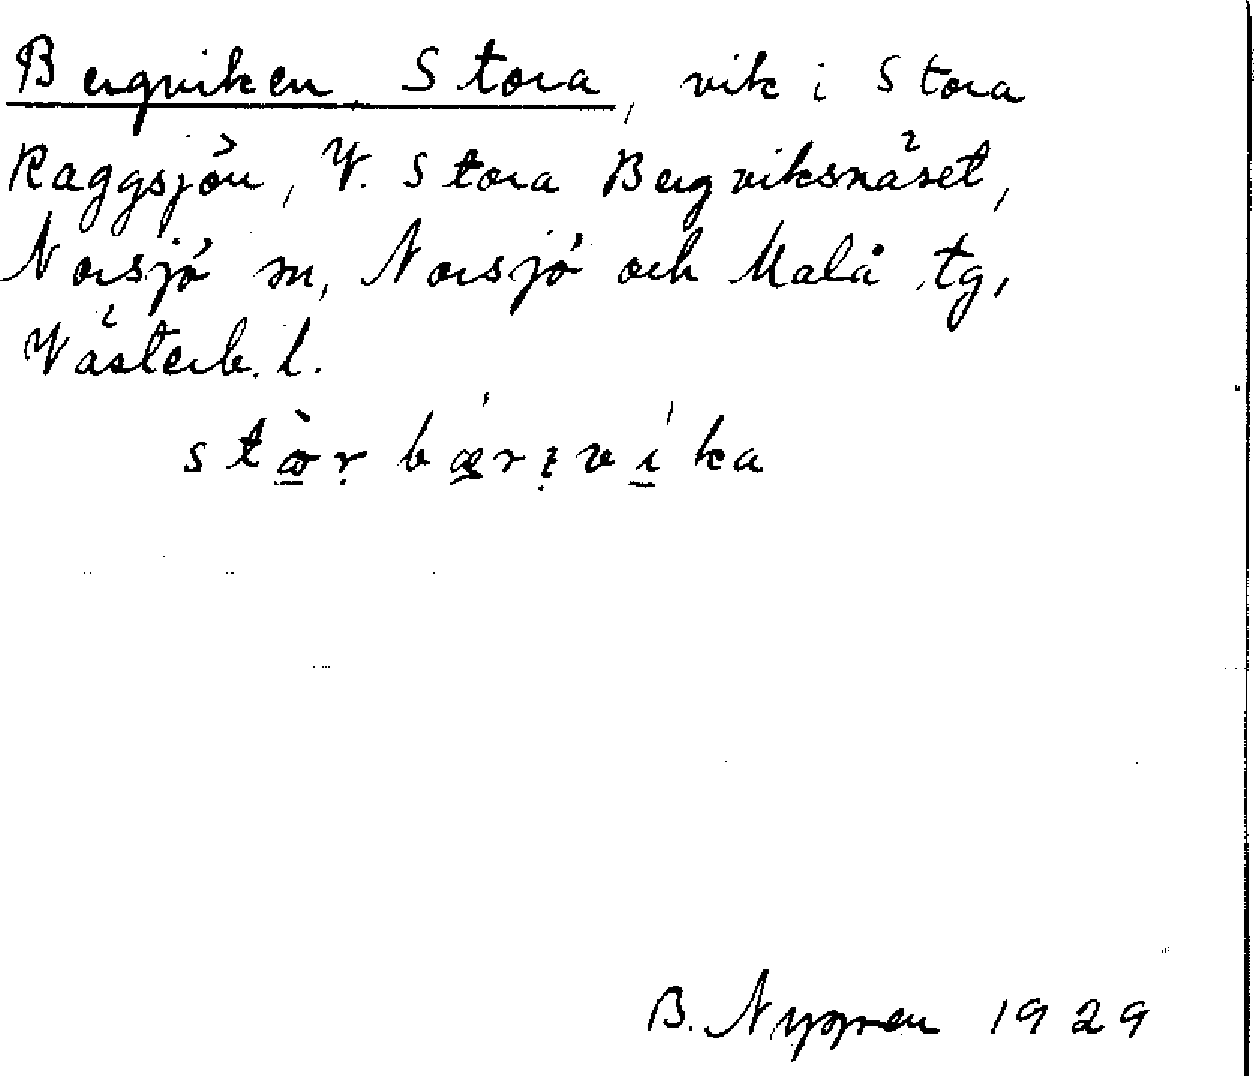 Bergviken, Stora, vik i Stora
Raggsjön, V. Stora Bergviksnäset,
Norsjö sn, Norsjö och Malå tg,
Västerb. l.
B. Nygren 1929